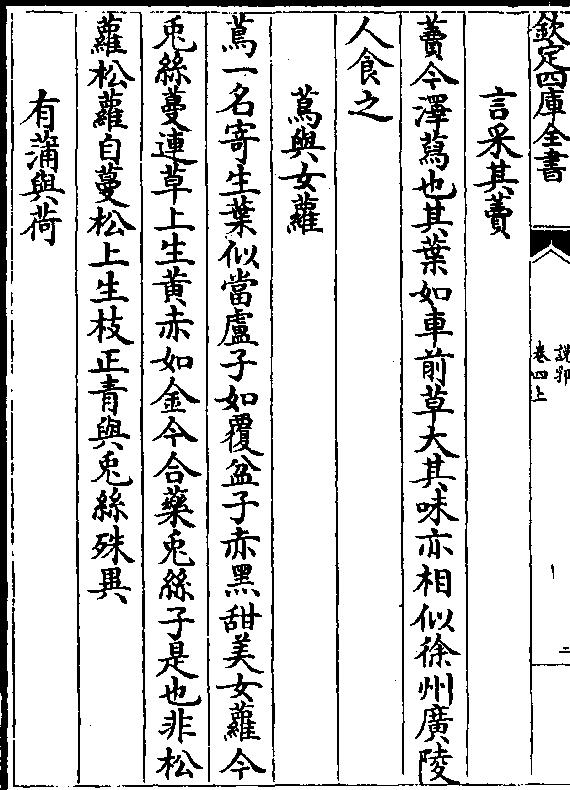 欽定四庫全書
說郛
卷四上
二
言采其藚
藚今澤蕮也其葉如車前草大其味亦相似徐州廣陵
人食之
蔦與女蘿
蔦一名寄生葉似當盧子如覆盆子赤黑甜美女蘿今
兎絲蔓連草上生黄赤如金今合藥兎絲子是也非松
蘿松蘿自蔓松上生枝正青與兎絲殊異
有蒲與荷